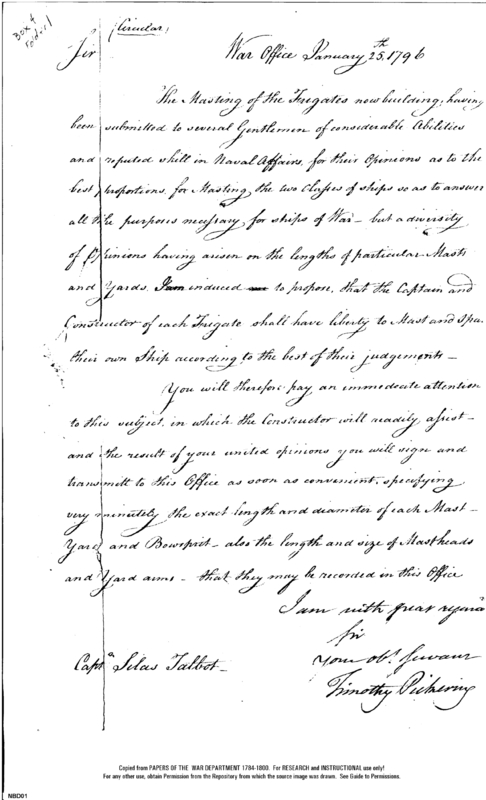 Box 4
folder 1
(Circular)
Sir
War Office January 25th, 1796
The Masting of the Frigates now building, having
been submitted to several Gentlemen of considerable Abilities
and reputed skill in Naval Affairs, for their Opinions as to the
best proportions, for Masting the two Classes of ships so as to answer
all the purposes necessary, for ships of War - but a diversity
of Opinions having arisen on the lengths of particular Masts
and Yards. I am induced to propose, that the Captain and
Constructor of each Frigate shall have liberty to Mast and Spar
their own Ship according to the best of their judgements -
You will therefore pay an immediate attention
to this subject, in which the Constructor will readily assist -
and the result of your united opinions you will sign and
transmitt to this Office as soon as convenient, specifying
very minutely the exact length and diameter of each Mast -
Yard and Bowsprit - also the length and size of Mastheads
and Yard arms - that they may be recorded in this Office
I am with great regard
Sir
Your obt. Servant
Timothy Pickering
Captn Silas Talbot -
Copied from PAPERS OF THE WAR DEPARTMENT 1784-1800. For RESEARCH and INSTRUCTIONAL use only!
For any other use, obtain Permission from the Repository from which the source image was drawn. See Guide to Permissions.
NBD01